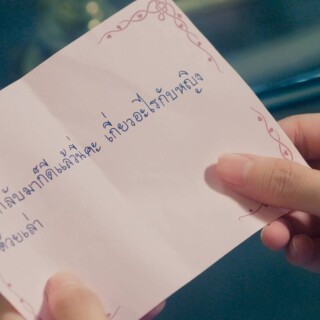 กลับมาก็ดีแล้วนี่คะ เกี่ยวอะไรกับหญิง
ด้วยเล่า